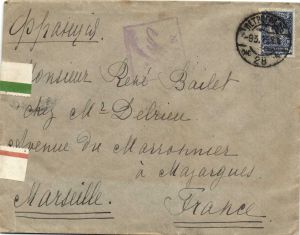 Франція.
Monsieur René Bailet
chez Mr Delrieu
Avenue du Marronnier
à Mazargues.
Marseille. France.